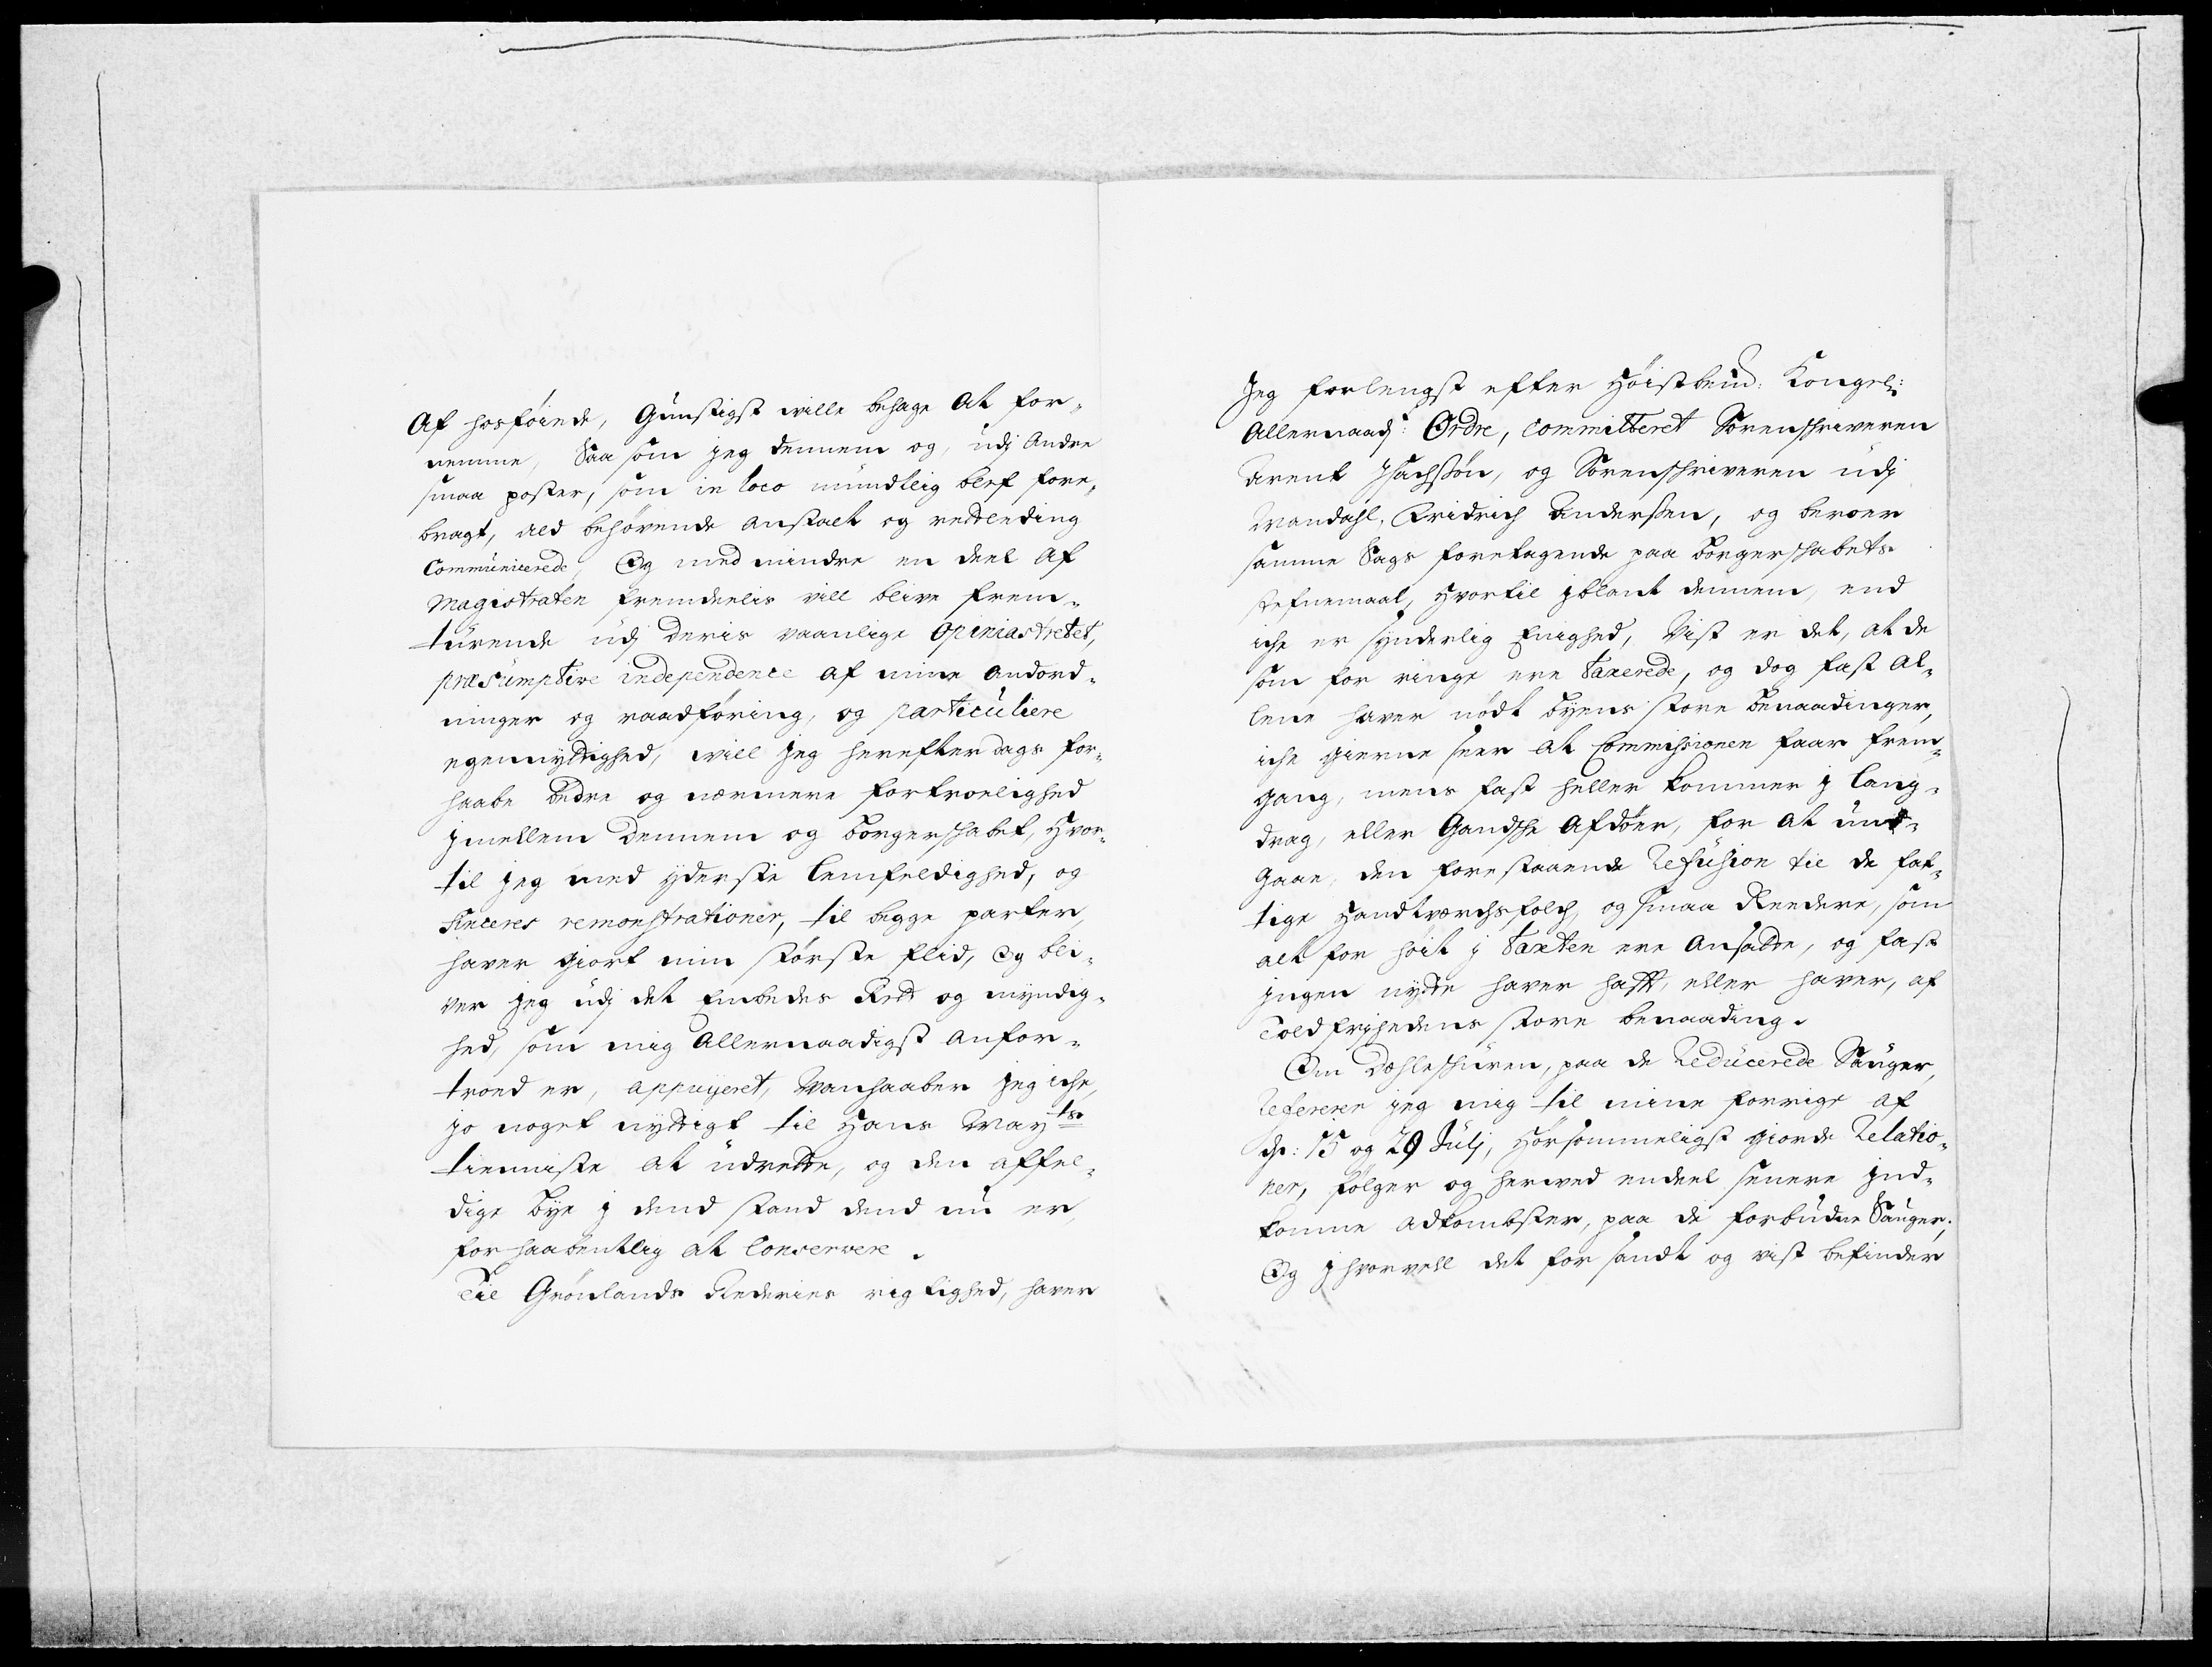 Af hosføiede, Gunstigst wille behage at for-
nemme, Saa som jeg dennem og, udj Andre
smaa poster, som in loco mundtlig blef fore-
bragt, ald behørende anstalt og vedleding
Communicerede, Og med mindre en deel af
Magistraten fremdeelis vill blive frem-
turende udj deris vaanlige Opiniastretet,
præsumptive independence af mine Andord-
ninger og raadføring, og particuliere
egennyttighed, will jeg herefter dags for-
haabe bedre og nærmere fortroelighed
jmellem dennem og Borgerschabet, Hvor-
til jeg med yderste lemfeldighed, og
sinceres remonstrationer, til begge parter,
haver giort min største flid, Og bli-
ver jeg udj det Embedes Rett og myndig-
hed, som mig Allernaadigst anfor-
troed er, appuyeret, Wanhaaber jeg iche,
jo noget nyttigt til Hans May<sup>ts</sup>
tienniste at udrette, og den affel-
dige Bye j dend stand dend nu er,
forhaabentlig at Conservere.
Til Grønlands Rederies rigtighed, haver
Jeg forlengst efter Høistbem: Kongel:
Allernaad: Ordre, committeret Sorenschriveren
Arent Jsachsøn, og Sorenschriveren udj
Mandahl, Fridrich Andersen, og beroer
samme Sags foretagende paa Borgerschabets
stefnemaal, Hvortil jblant dennem, end
iche er synderlig Enighed, Vist er det, at de
som for ringe ere Taxerede, og dog fast al-
lene haver nødt Byens store Benaadinger,
iche gierne seer at Commissionen faar frem-
gang, mens fast heller kommer j lang-
drag, eller Gandsche Afdøer, for at und-
gaae, den forestaaende Refusion til de fat-
tige Handtverchsfolch, og smaa Reedere, som
alt for høit j Taxten ere Ansatte, og fast
jngen nytte haver hafft, eller haver, af
Toldfrihedens store benaading.
Om Dahleskuren, paa de Reducerede Sauger,
Refererer jeg mig til mine forrige af
ds: 15 og 29 Julj, Hørsommeligst giorde Relatio-
ner, følger og herved endeel senere jnd-
komne adkombster, paa de forbudne Sauger;
Og jhvorvell det for sandt og vist befinder